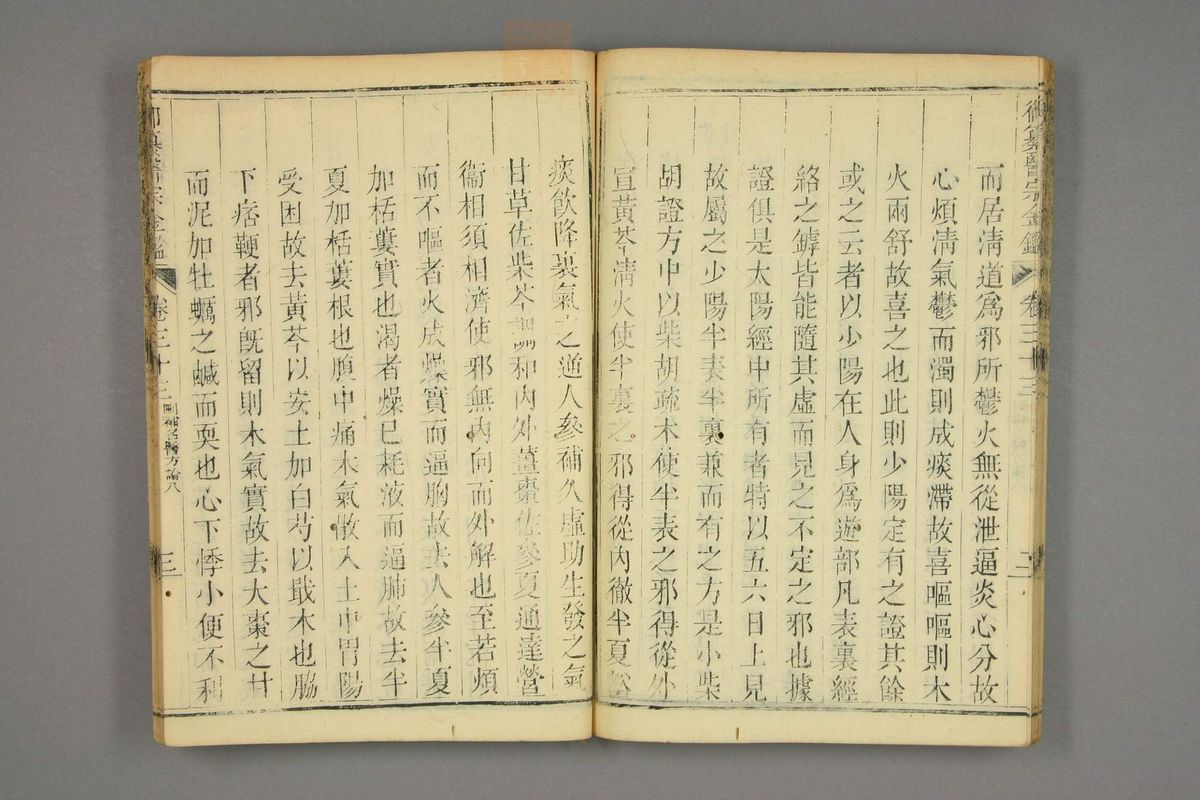 御纂醫宗金鑑 卷三十三 二
而居淸道爲邪所鬱火無從泄逼炎心分故
心煩淸氣鬱而濁則成痰滯故喜嘔嘔則木
火兩舒故喜之也此則少陽定有之證其餘
或之云者以少陽在人身爲遊部凡表裏經
絡之罅皆能隨其虛而見之不定之邪也據
證俱是太陽經中所有者特以五六日上見
故屬之少陽半表半裏兼而有之方是小柴
胡證方中以柴胡疏木使半表之邪得從外
宣黃芩淸火使半裏之邪得從內徹半夏
痰飮降裏氣之逆人參補久虛助生發之氣
甘草佐柴芩調和內外薑棗佐參夏通達營
衞相須相濟使邪無內向而外解也至若煩
而不嘔者火成燥實而逼胸故去人參半夏
加栝蔞實也渴者燥已耗液而逼肺故去半
夏加栝蔞根也腹中痛木氣散入土中胃陽
受困故去黃芩以安土加白芍以戢木也脇
下痞鞕者邪旣留則木氣實故去大棗之甘
而泥加牡蠣之鹹而耎也心下悸小便不利
御纂醫宗金鑑 卷三十三 刪補名醫方論八 三